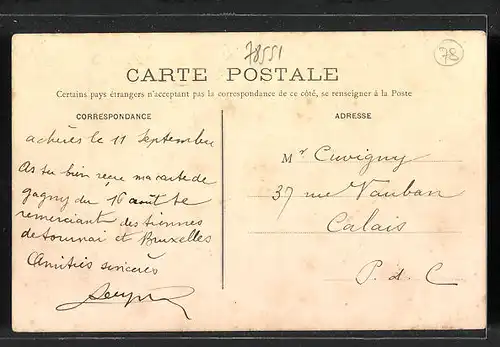 78551
78
CARTE POSTALE
Certains pays étrangers n'acceptant pas la correspondance de ce côté, se renseigner à la Poste
CORRESPONDANCE
ADRESSE
achères le 11 Septembre
As tu bien reçue ma carte de
gagny du 16 août te
remerciant des tiennes
de tournai et Bruxelles
Amitiés sincères
Mr Cuvigny
37 rue Vauban
Calais
P. d. C